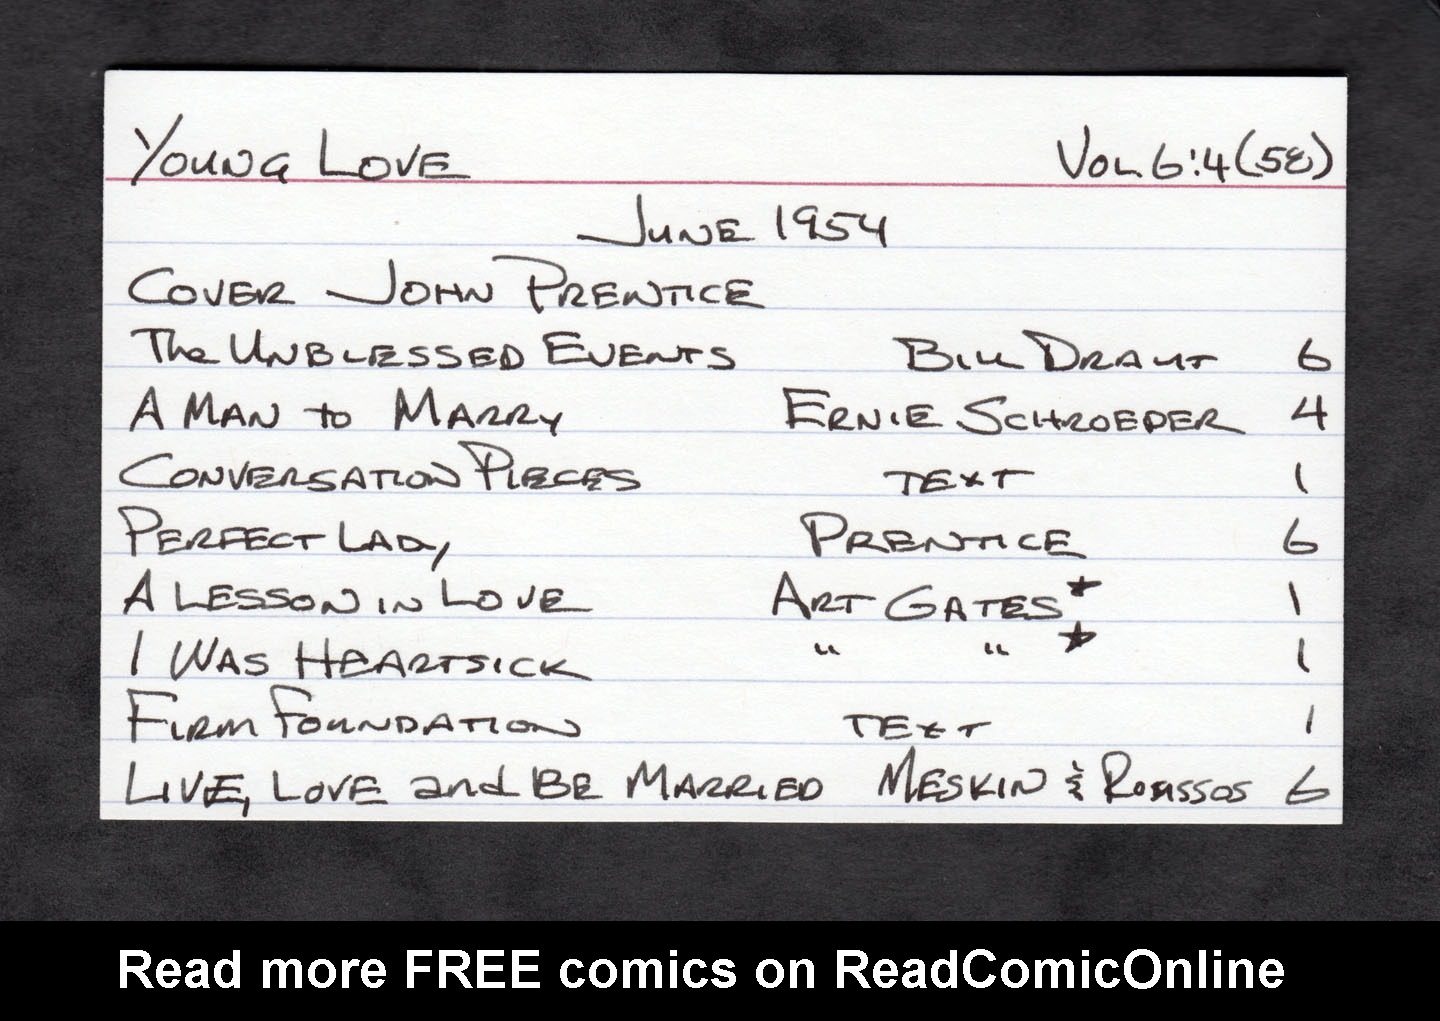 Young Love Vol. 6:4 (58)
June 1954
Cover John Prentice
The Unblessed Events Bill Draut 6
A Man to Marry Ernie Schroeder 4
Conversation Pieces text 1
Perfect Lady Prentice 6
A Lesson in Love Art Gates* 1
I Was Heartsick " " * 1
Firm Foundation text 1
Live, Love and Be Married Meskin & Roussos 6
Read more FREE comics on ReadComicOnline